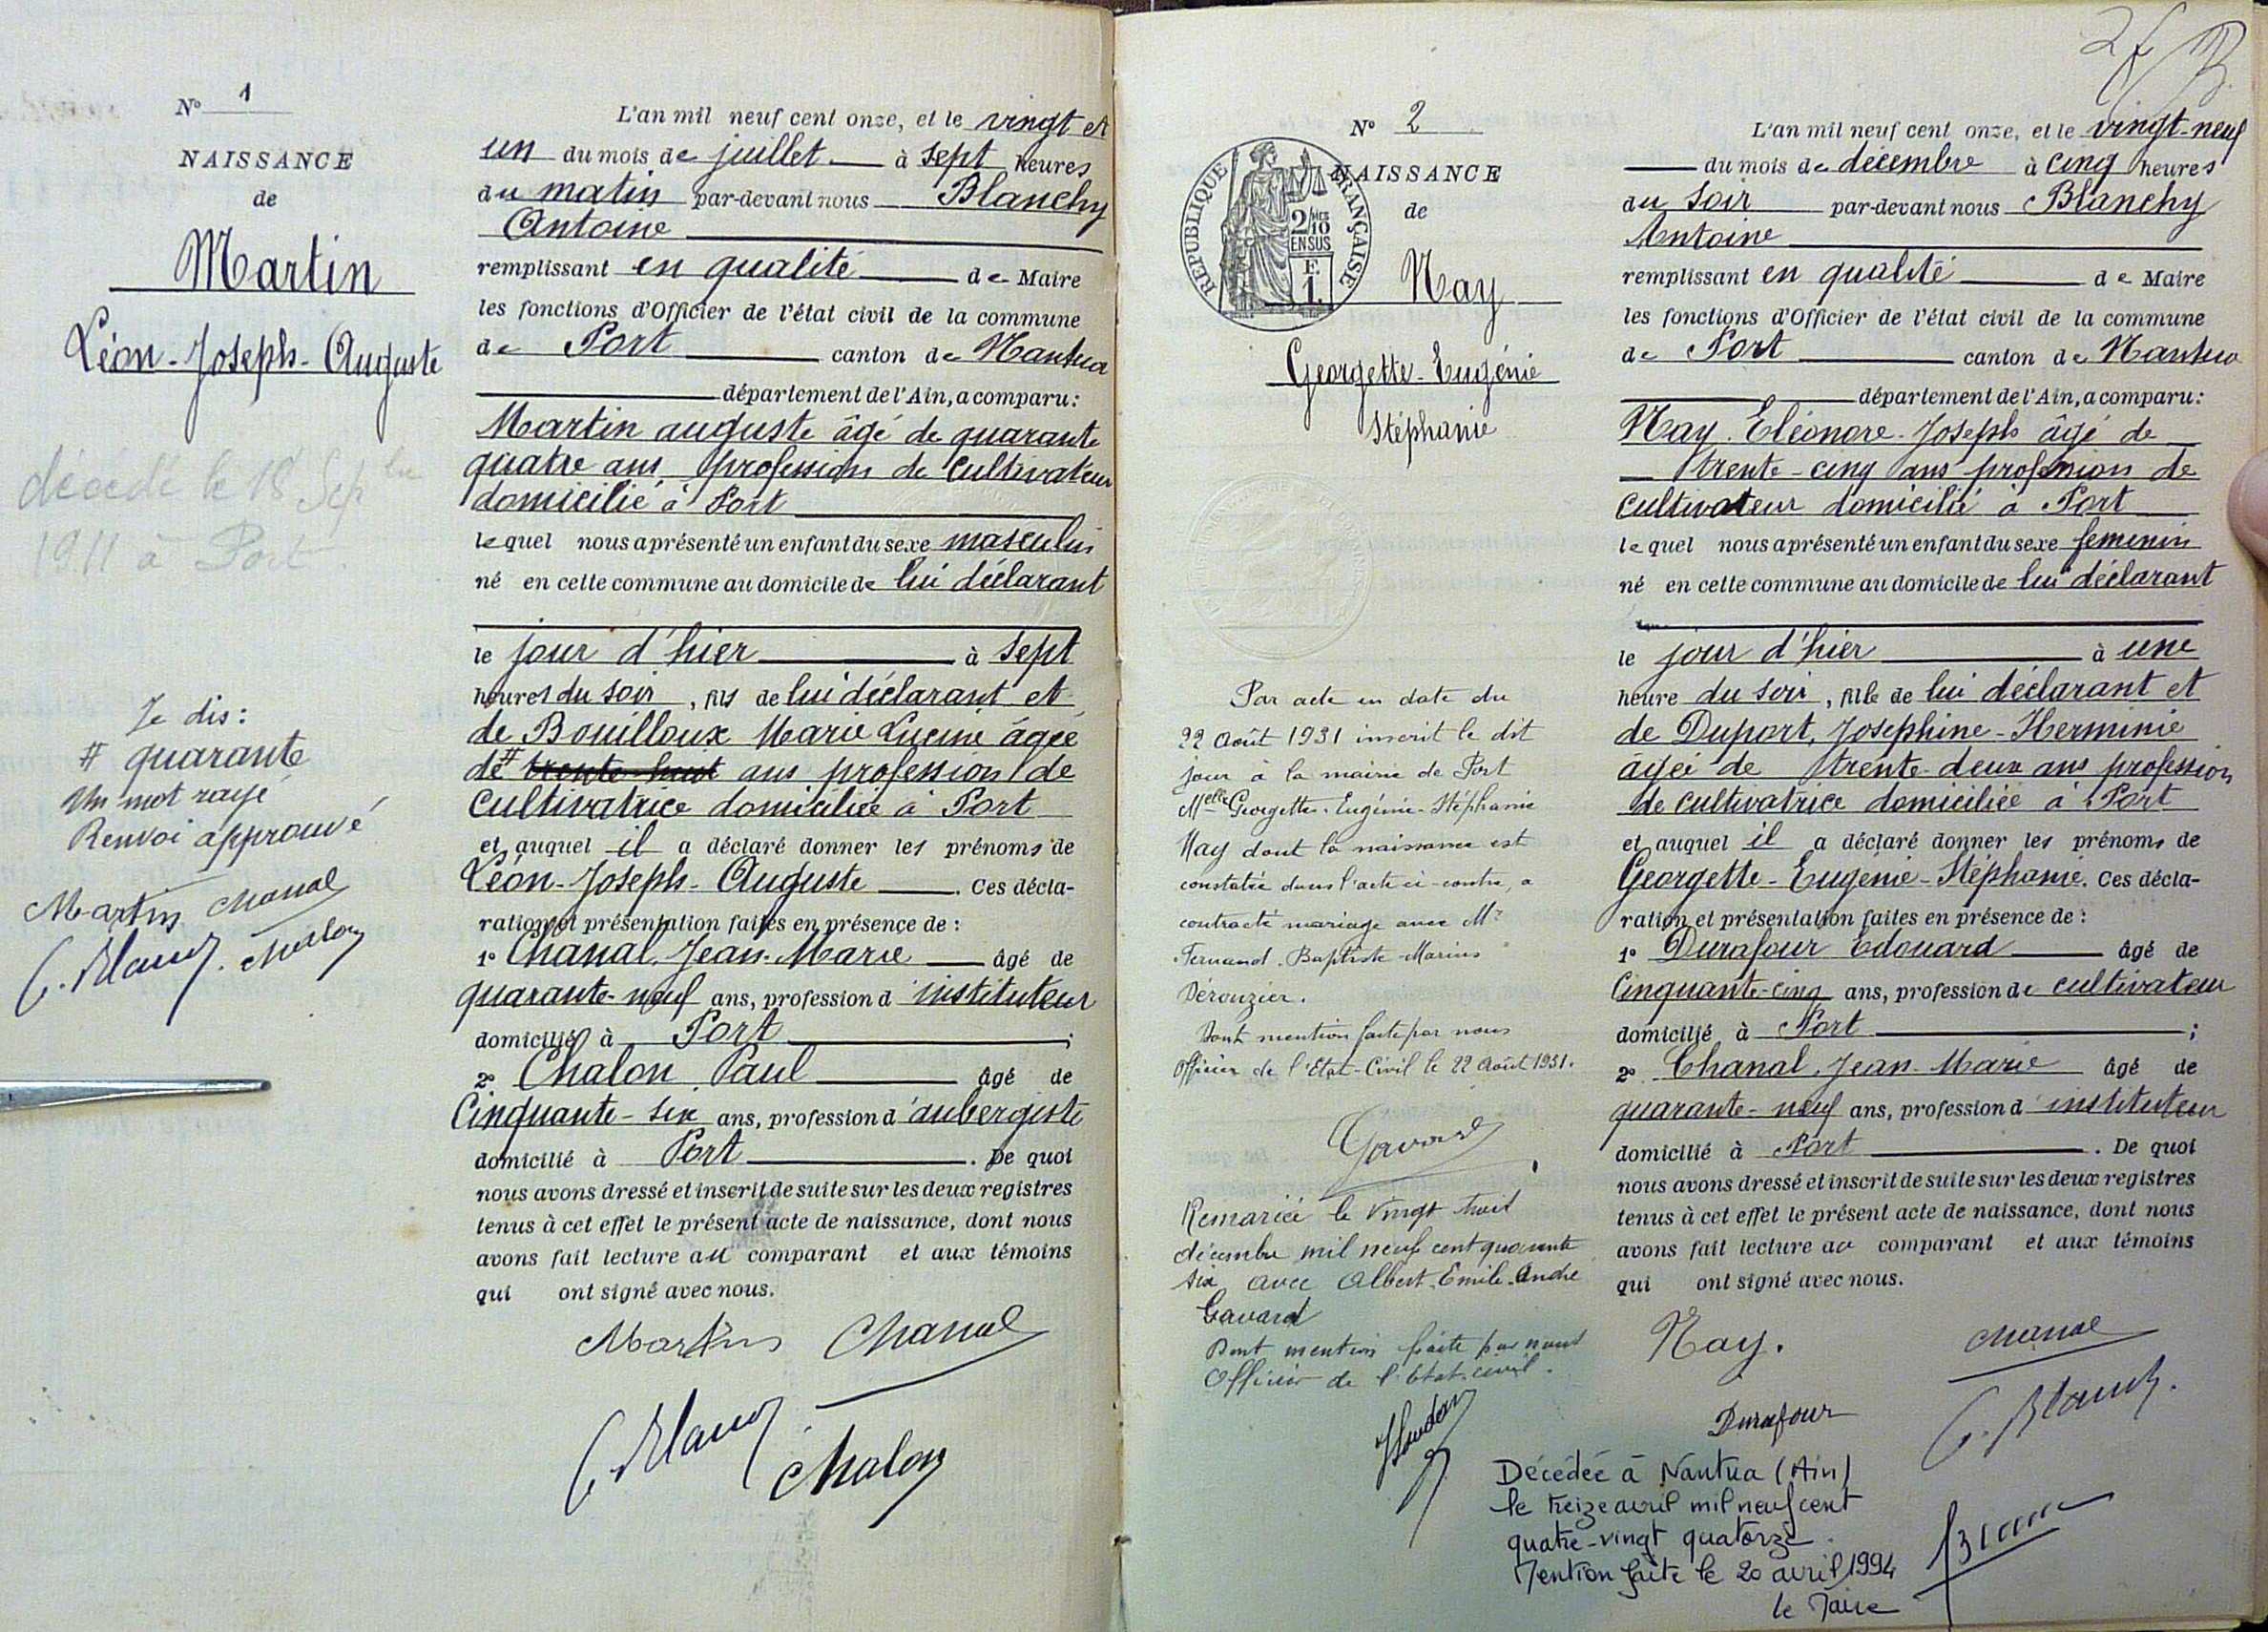 N° 1
NAISSANCE
de
Martin
Léon-Joseph-Auguste
décédé le 18 Sepbre
1911 à Port.
Je dis:
# quarante
Un mot rayé
Renvoi approuvé
Martin Chanal
Chalon
L'an mil neuf cent onze, et le vingt et
un du mois de juillet à sept heures
du matin par-devant nous Blanchy
Antoine
remplissant en qualité de Maire
les fonctions d'Officier de l'état civil de la commune
de Port canton de Nantua
département de l'Ain, a comparu:
Martin auguste âgé de quarante
quatre ans profession de Cultivateur
domicilié à Port
lequel nous a présenté un enfant du sexe masculin
né en cette commune au domicile de lui déclarant
le jour d'hier à sept
heures du soir, fils de lui déclarant et
de Bouilloux Marie Lucine âgée
de # trente-huit ans profession de
Cultivatrice domiciliée à Port
et auquel il a déclaré donner les prénoms de
Léon-Joseph-Auguste. Ces décla-
ration et présentation faites en présence de :
1° Chanal, Jean-Marie âgé de
quarante-neuf ans, profession d'instituteur
domicilié à Port ;
2° Chalon Paul âgé de
Cinquante-six ans, profession d'aubergiste
domicilié à Port. De quoi
nous avons dressé et inscrit de suite sur les deux registres
tenus à cet effet le présent acte de naissance, dont nous
avons fait lecture au comparant et aux témoins
qui ont signé avec nous.
Martin Chanal
Chalon
N° 2
NAISSANCE
de
RÉPUBLIQUE FRANÇAISE
2/10
EN SUS
F.
1.
Nay
Georgette-Eugénie
Stéphanie
Par acte en date du
22 Août 1931 inscrit le dit
jour à la mairie de Port
Melle Georgette-Eugénie-Stéphanie
Nay dont la naissance est
constatée dans l'acte ci-contre, a
contracté mariage avec Mr
Fernand-Baptiste-Marius
Dérouzier.
Dont mention faite par nous
Officier de l'Etat-Civil le 22 Août 1931.
Gavard
Remariée le vingt huit
décembre mil neuf cent quarante
six avec Albert-Emile-André
Gavard
Dont mention faite par nous
Officier de l'Etat-civil.
L'an mil neuf cent onze, et le vingt-neuf
du mois de décembre à cinq heures
du soir par-devant nous Blanchy
Antoine
remplissant en qualité de Maire
les fonctions d'Officier de l'état civil de la commune
de Port canton de Nantua
département de l'Ain, a comparu:
Nay. Eléonore-Joseph âgé de
trente-cinq ans profession de
cultivateur domicilié à Port
lequel nous a présenté un enfant du sexe feminin
né en cette commune au domicile de lui déclarant
le jour d'hier à une
heure du soir, fille de lui déclarant et
de Duport, Josephine-Herminie
âgée de trente-deux ans profession
de cultivatrice domiciliée à Port
et auquel il a déclaré donner les prénoms de
Georgette-Eugénie-Stéphanie. Ces décla-
ration et présentation faites en présence de :
1° Durafour Edouard âgé de
Cinquante-cinq ans, profession de cultivateur
domicilié à Port ;
2° Chanal, Jean-Marie âgé de
quarante-neuf ans, profession d'instituteur
domicilié à Port. De quoi
nous avons dressé et inscrit de suite sur les deux registres
tenus à cet effet le présent acte de naissance, dont nous
avons fait lecture au comparant et aux témoins
qui ont signé avec nous.
Nay. Chanal
Durafour
Décédée à Nantua (Ain)
le treize avril mil neuf cent
quatre-vingt quatorze.
Mention faite le 20 avril 1994
le Maire